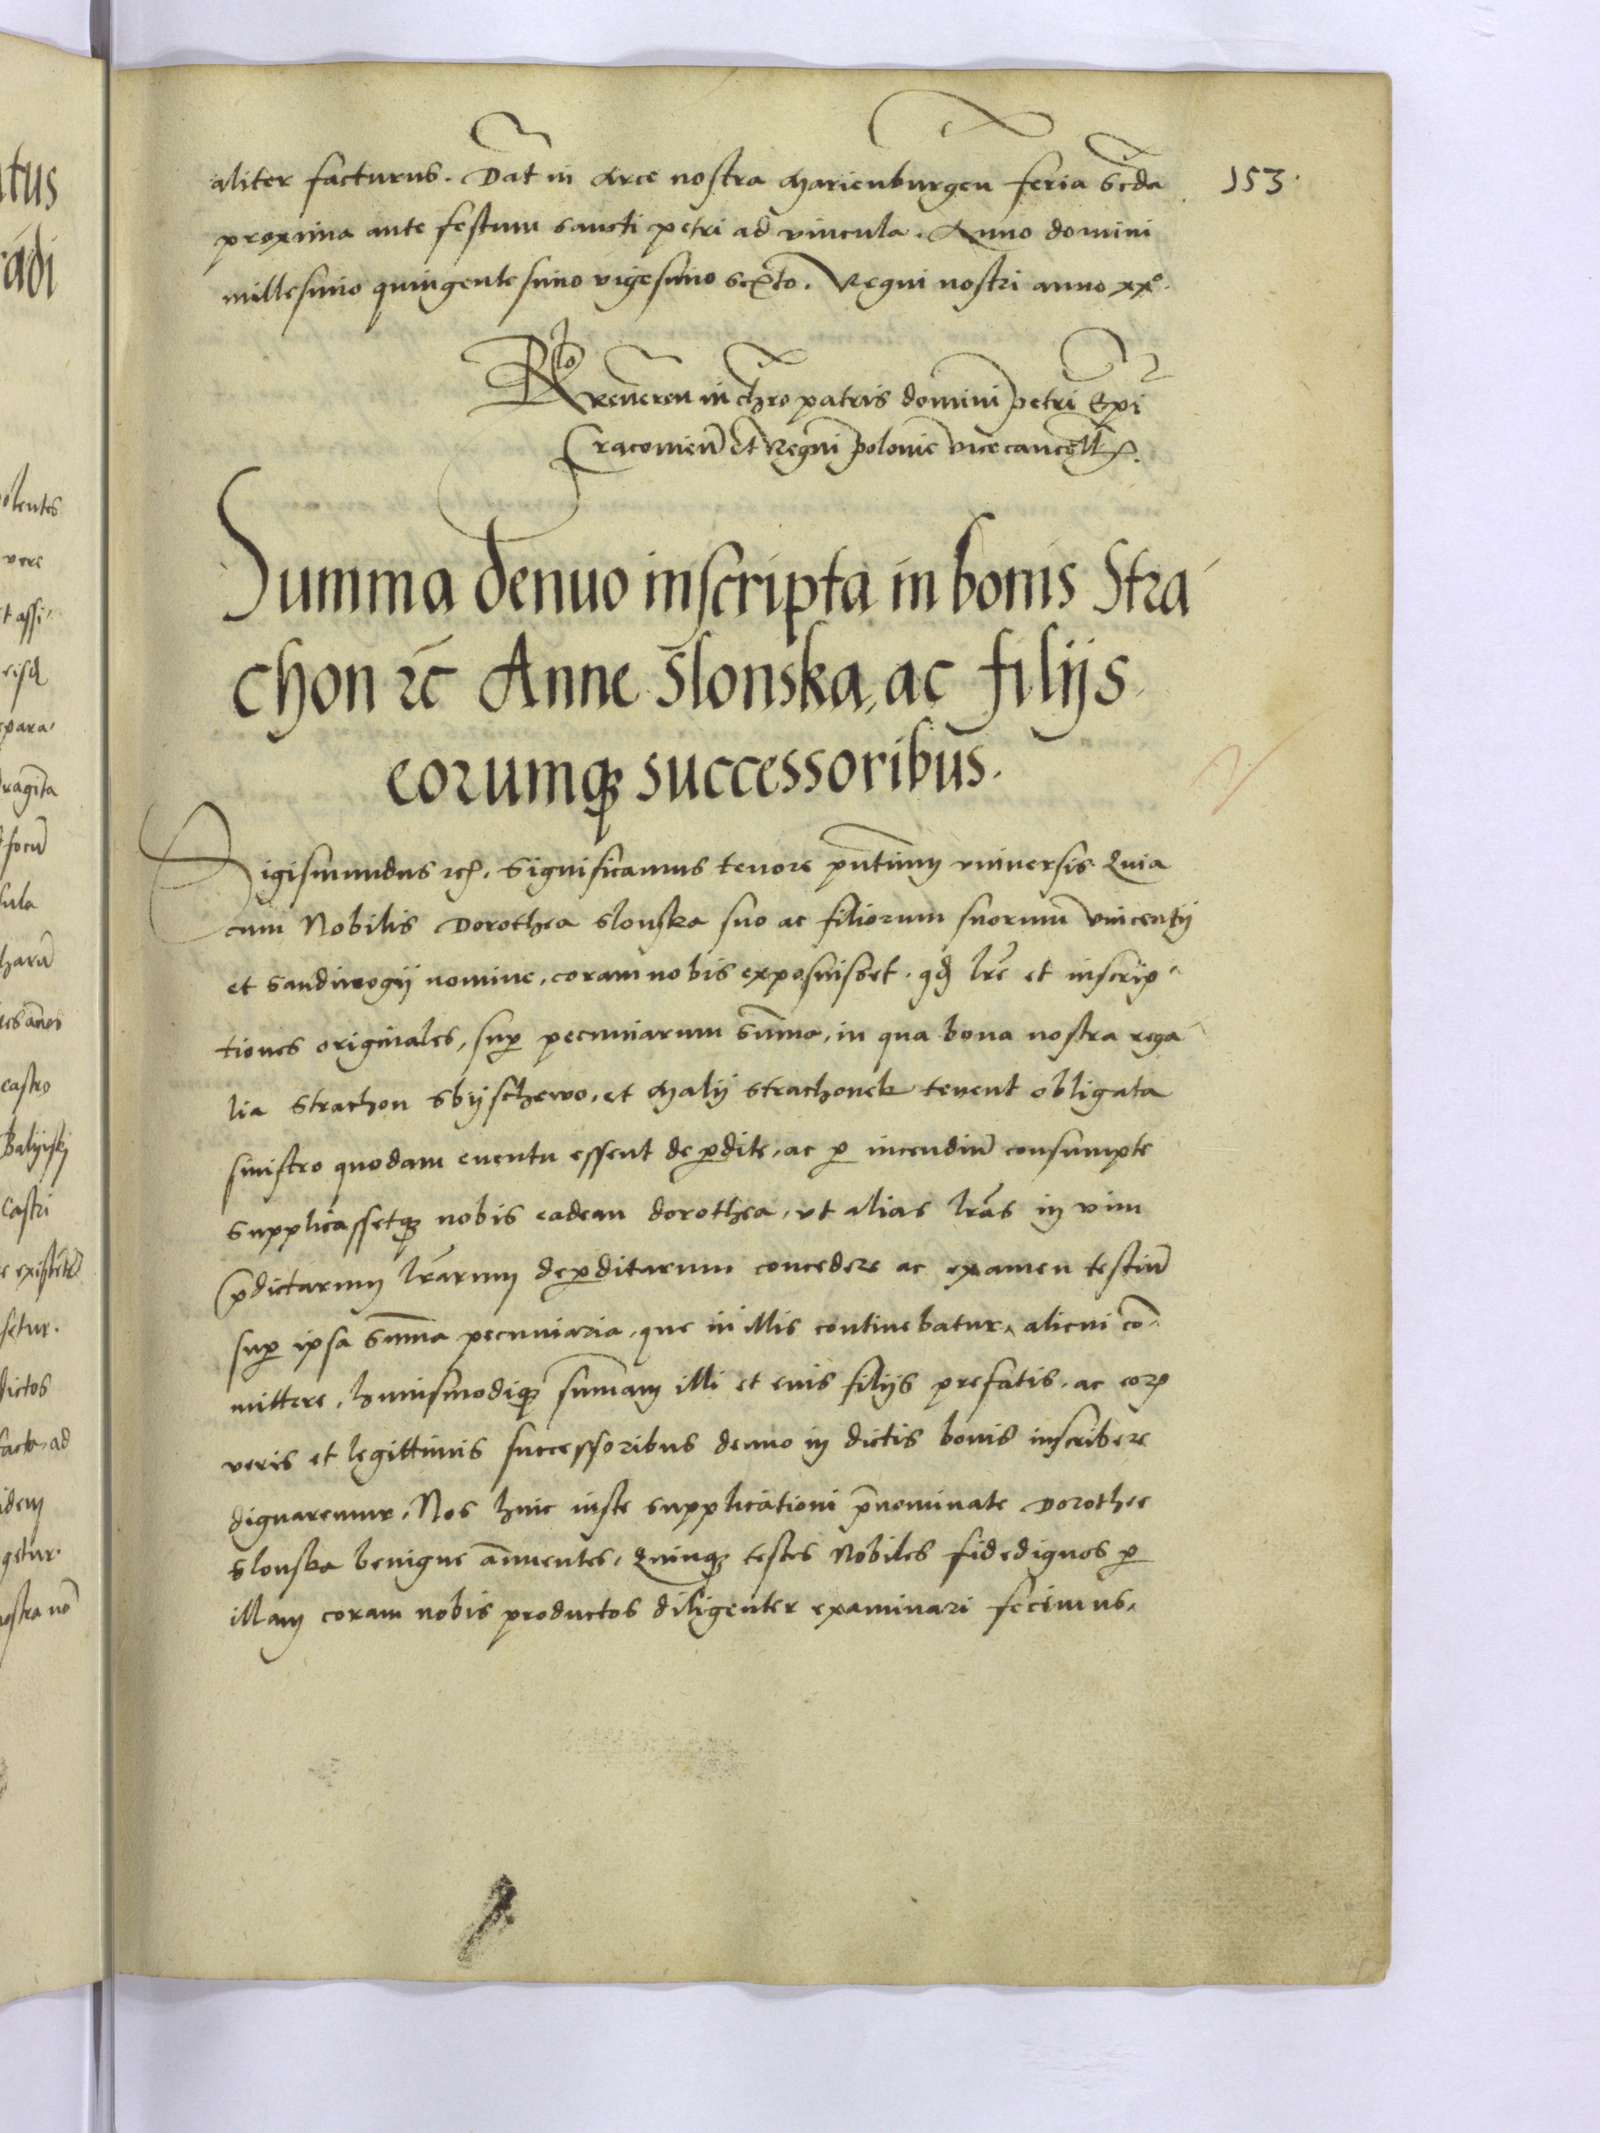 aliter facturus. Dat in Arce nostra Marienburgen feria Scđa 153.
proxima ante festum sancti petri ad vincula. Anno domini
millesimo quingentesimo vigesimo sexto. Regni nostri anno xxº.
Rlo reueren in chro patris domini petri Epi
Cracovien et Regni polonie vicecancell.
Summa denuo inscripta in bonis Stra
chon ꝛc Anne Slonska, ac filijs
eorumqꝫ successoribus.
Sigismundus ꝛc. Significamus tenore pntium vniuersis Quia
cum Nobilis Dorothea slonska suo ac filiorum suorum vincentij
et sandiwogij nomine, coram nobis exposuisset. qđ lrē et inscrip
tiones originales, suꝑ pecuniarum sūma, in qua bona nostra rega
lia strachon sbijschewo, et Malij strachonek tenent obligata
sinistro quodam euentu essent deꝑdite, ac ꝑ incendiū consumpte
supplicassetqꝫ nobis eadem dorothea, vt alias lrās in vim
p̄dictarum lrārum deꝑditarum concedere ac examen testiū
suꝑ ipsa sūma pecuniaria, que in illis continebatur, alicui cō
mittere, huiusmodiqꝫ sumam illi et euis filijs prefatis, ac eoꝝ
veris et legittimis successoribus denuo in dictis bonis inscribere
dignaremur, Nos huic iuste supplicationi p̄nominate Dorothee
slonska benigne ānuentes, Quinqꝫ testes Nobiles fidedignos ꝑ
illam coram nobis productos diligenter examinari fecimus,